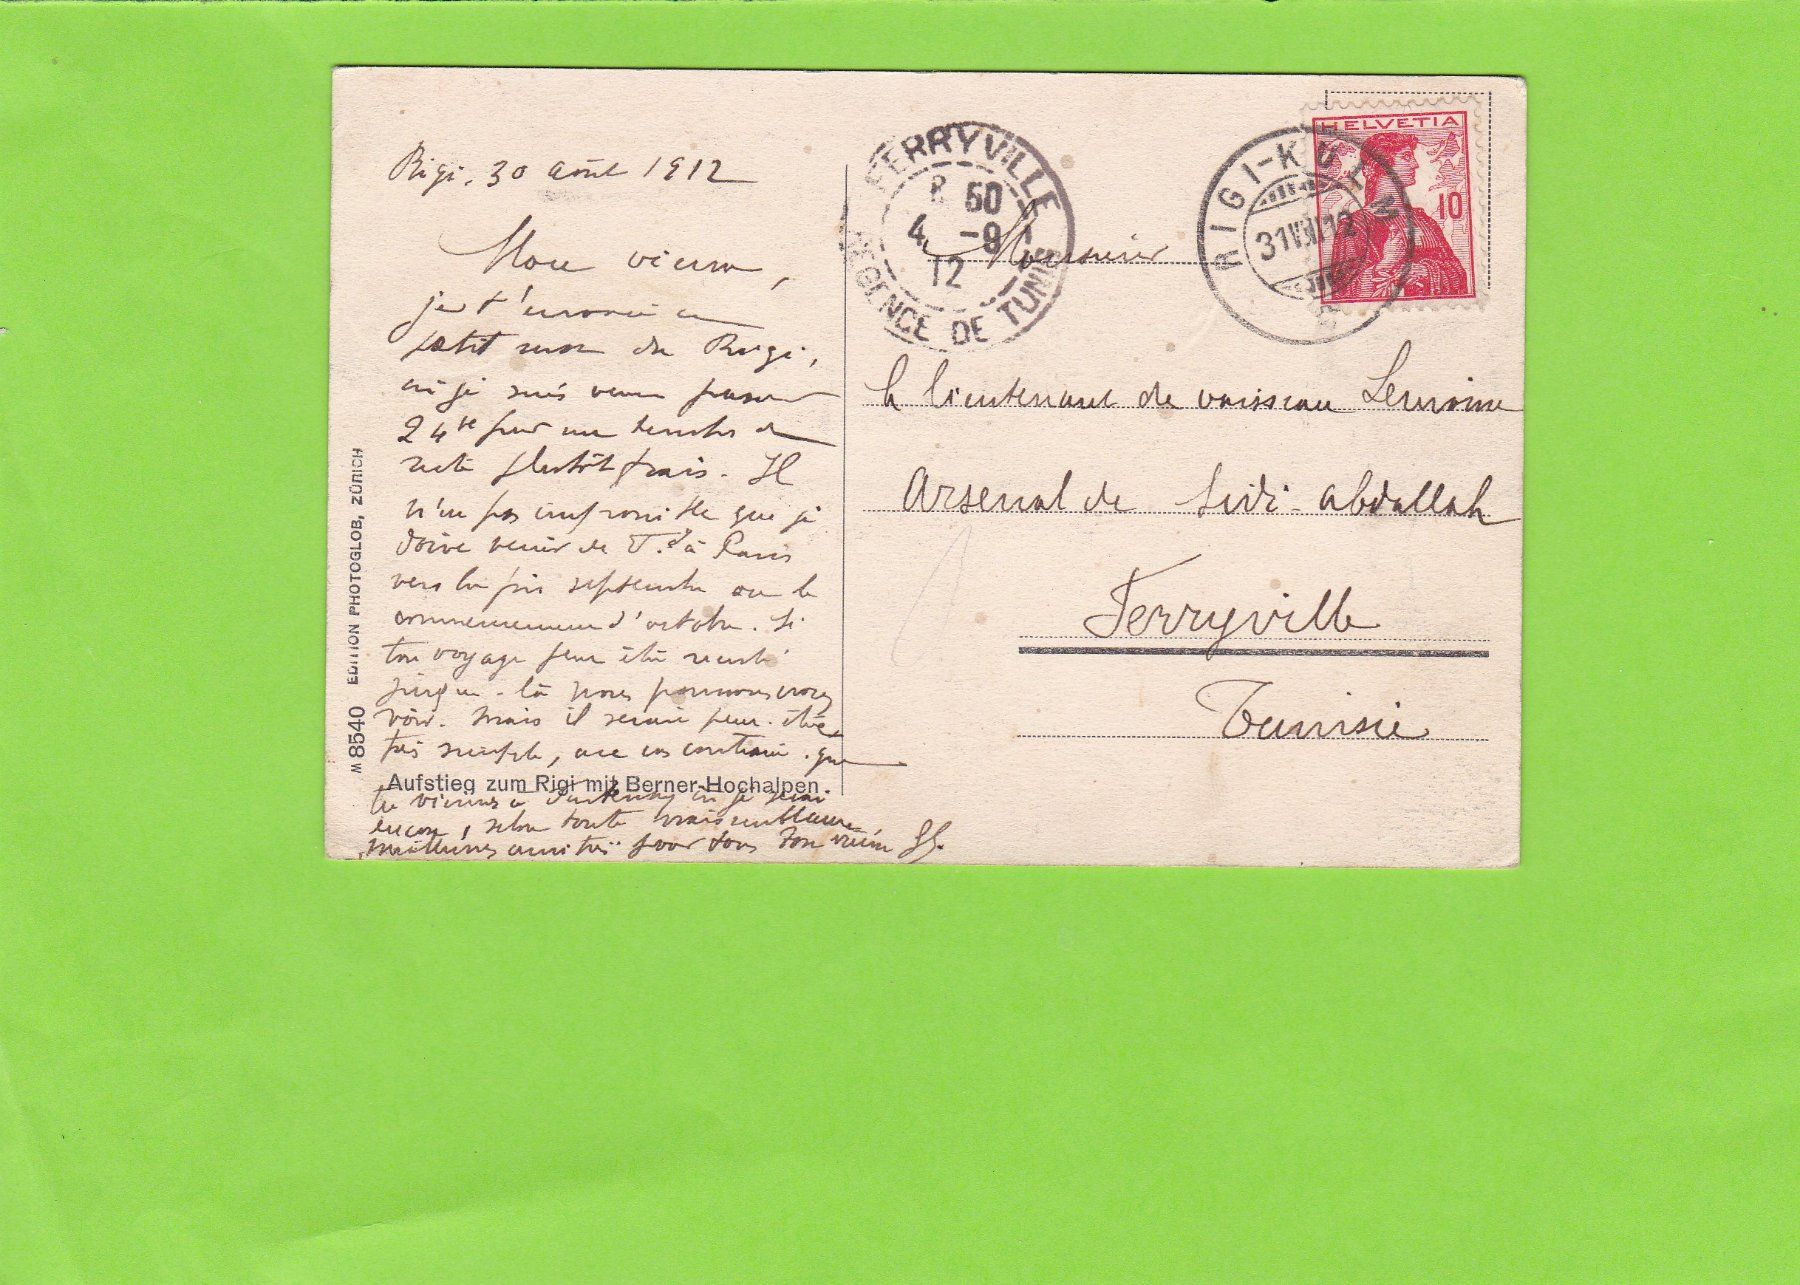 Rigi, 30 août 1912
Mon vieux,
je t'envoie un
petit mot du Rigi,
où je suis venu passer
24 hr par un temps
resté plutôt frais. Il
n'est pas impossible que je
doive venir de T. à Paris
vers la fin septembre ou le
commencement d'octobre. Si
ton voyage peut être reculé
jusque-là nous pourrions nous
voir. Mais il serait peut-être
très simple, au contraire, que
tu viennes à où je serai
encore, selon toute vraisemblance
meilleures amitiés pour tous ton vieux
Aufstieg zum Rigi mit Berner-Hochalpen
M 8540 EDITION PHOTOGLOB, ZÜRICH
FERRYVILLE
8 50
4 -9
12
REGENCE DE TUNIS
RIGI-KULM
31 VIII 12
HELVETIA
10
Monsieur
le lieutenant de vaisseau Lemoine
Arsenal de Sidi-Abdallah
Ferryville
Tunisie